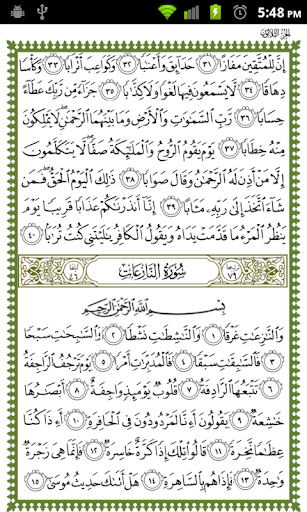 5:48 PM
الجزء الثلاثون
إِنَّ لِلْمُتَّقِينَ مَفَازًا ٣١ حَدَآئِقَ وَأَعْنَٰبًا ٣٢ وَكَوَاعِبَ أَتْرَابًا ٣٣ وَكَأْسًا
دِهَاقًا ٣٤ لَّا يَسْمَعُونَ فِيهَا لَغْوًا وَلَا كِذَّٰبًا ٣٥ جَزَآءً مِّن رَّبِّكَ عَطَآءً
حِسَابًا ٣٦ رَّبِّ ٱلسَّمَٰوَٰتِ وَٱلْأَرْضِ وَمَا بَيْنَهُمَا ٱلرَّحْمَٰنِ لَا يَمْلِكُونَ
مِنْهُ خِطَابًا ٣٧ يَوْمَ يَقُومُ ٱلرُّوحُ وَٱلْمَلَٰٓئِكَةُ صَفًّا لَّا يَتَكَلَّمُونَ
إِلَّا مَنْ أَذِنَ لَهُ ٱلرَّحْمَٰنُ وَقَالَ صَوَابًا ٣٨ ذَٰلِكَ ٱلْيَوْمُ ٱلْحَقُّ فَمَن
شَآءَ ٱتَّخَذَ إِلَىٰ رَبِّهِۦ مَـَٔابًا ٣٩ إِنَّآ أَنذَرْنَٰكُمْ عَذَابًا قَرِيبًا يَوْمَ
يَنظُرُ ٱلْمَرْءُ مَا قَدَّمَتْ يَدَاهُ وَيَقُولُ ٱلْكَافِرُ يَٰلَيْتَنِى كُنتُ تُرَٰبًۢا ٤٠
ترتيبها ٧٩ سُورَةُ النَّازِعَاتِ آياتها ٤٦
بِسْمِ ٱللَّهِ ٱلرَّحْمَٰنِ ٱلرَّحِيمِ
وَٱلنَّٰزِعَٰتِ غَرْقًا ١ وَٱلنَّٰشِطَٰتِ نَشْطًا ٢ وَٱلسَّٰبِحَٰتِ سَبْحًا
٣ فَٱلسَّٰبِقَٰتِ سَبْقًا ٤ فَٱلْمُدَبِّرَٰتِ أَمْرًا ٥ يَوْمَ تَرْجُفُ ٱلرَّاجِفَةُ
٦ تَتْبَعُهَا ٱلرَّادِفَةُ ٧ قُلُوبٌ يَوْمَئِذٍ وَاجِفَةٌ ٨ أَبْصَٰرُهَا
خَٰشِعَةٌ ٩ يَقُولُونَ أَءِنَّا لَمَرْدُودُونَ فِى ٱلْحَافِرَةِ ١٠ أَءِذَا كُنَّا
عِظَٰمًا نَّخِرَةً ١١ قَالُوا۟ تِلْكَ إِذًا كَرَّةٌ خَاسِرَةٌ ١٢ فَإِنَّمَا هِىَ زَجْرَةٌ
وَٰحِدَةٌ ١٣ فَإِذَا هُم بِٱلسَّاهِرَةِ ١٤ هَلْ أَتَىٰكَ حَدِيثُ مُوسَىٰٓ ١٥